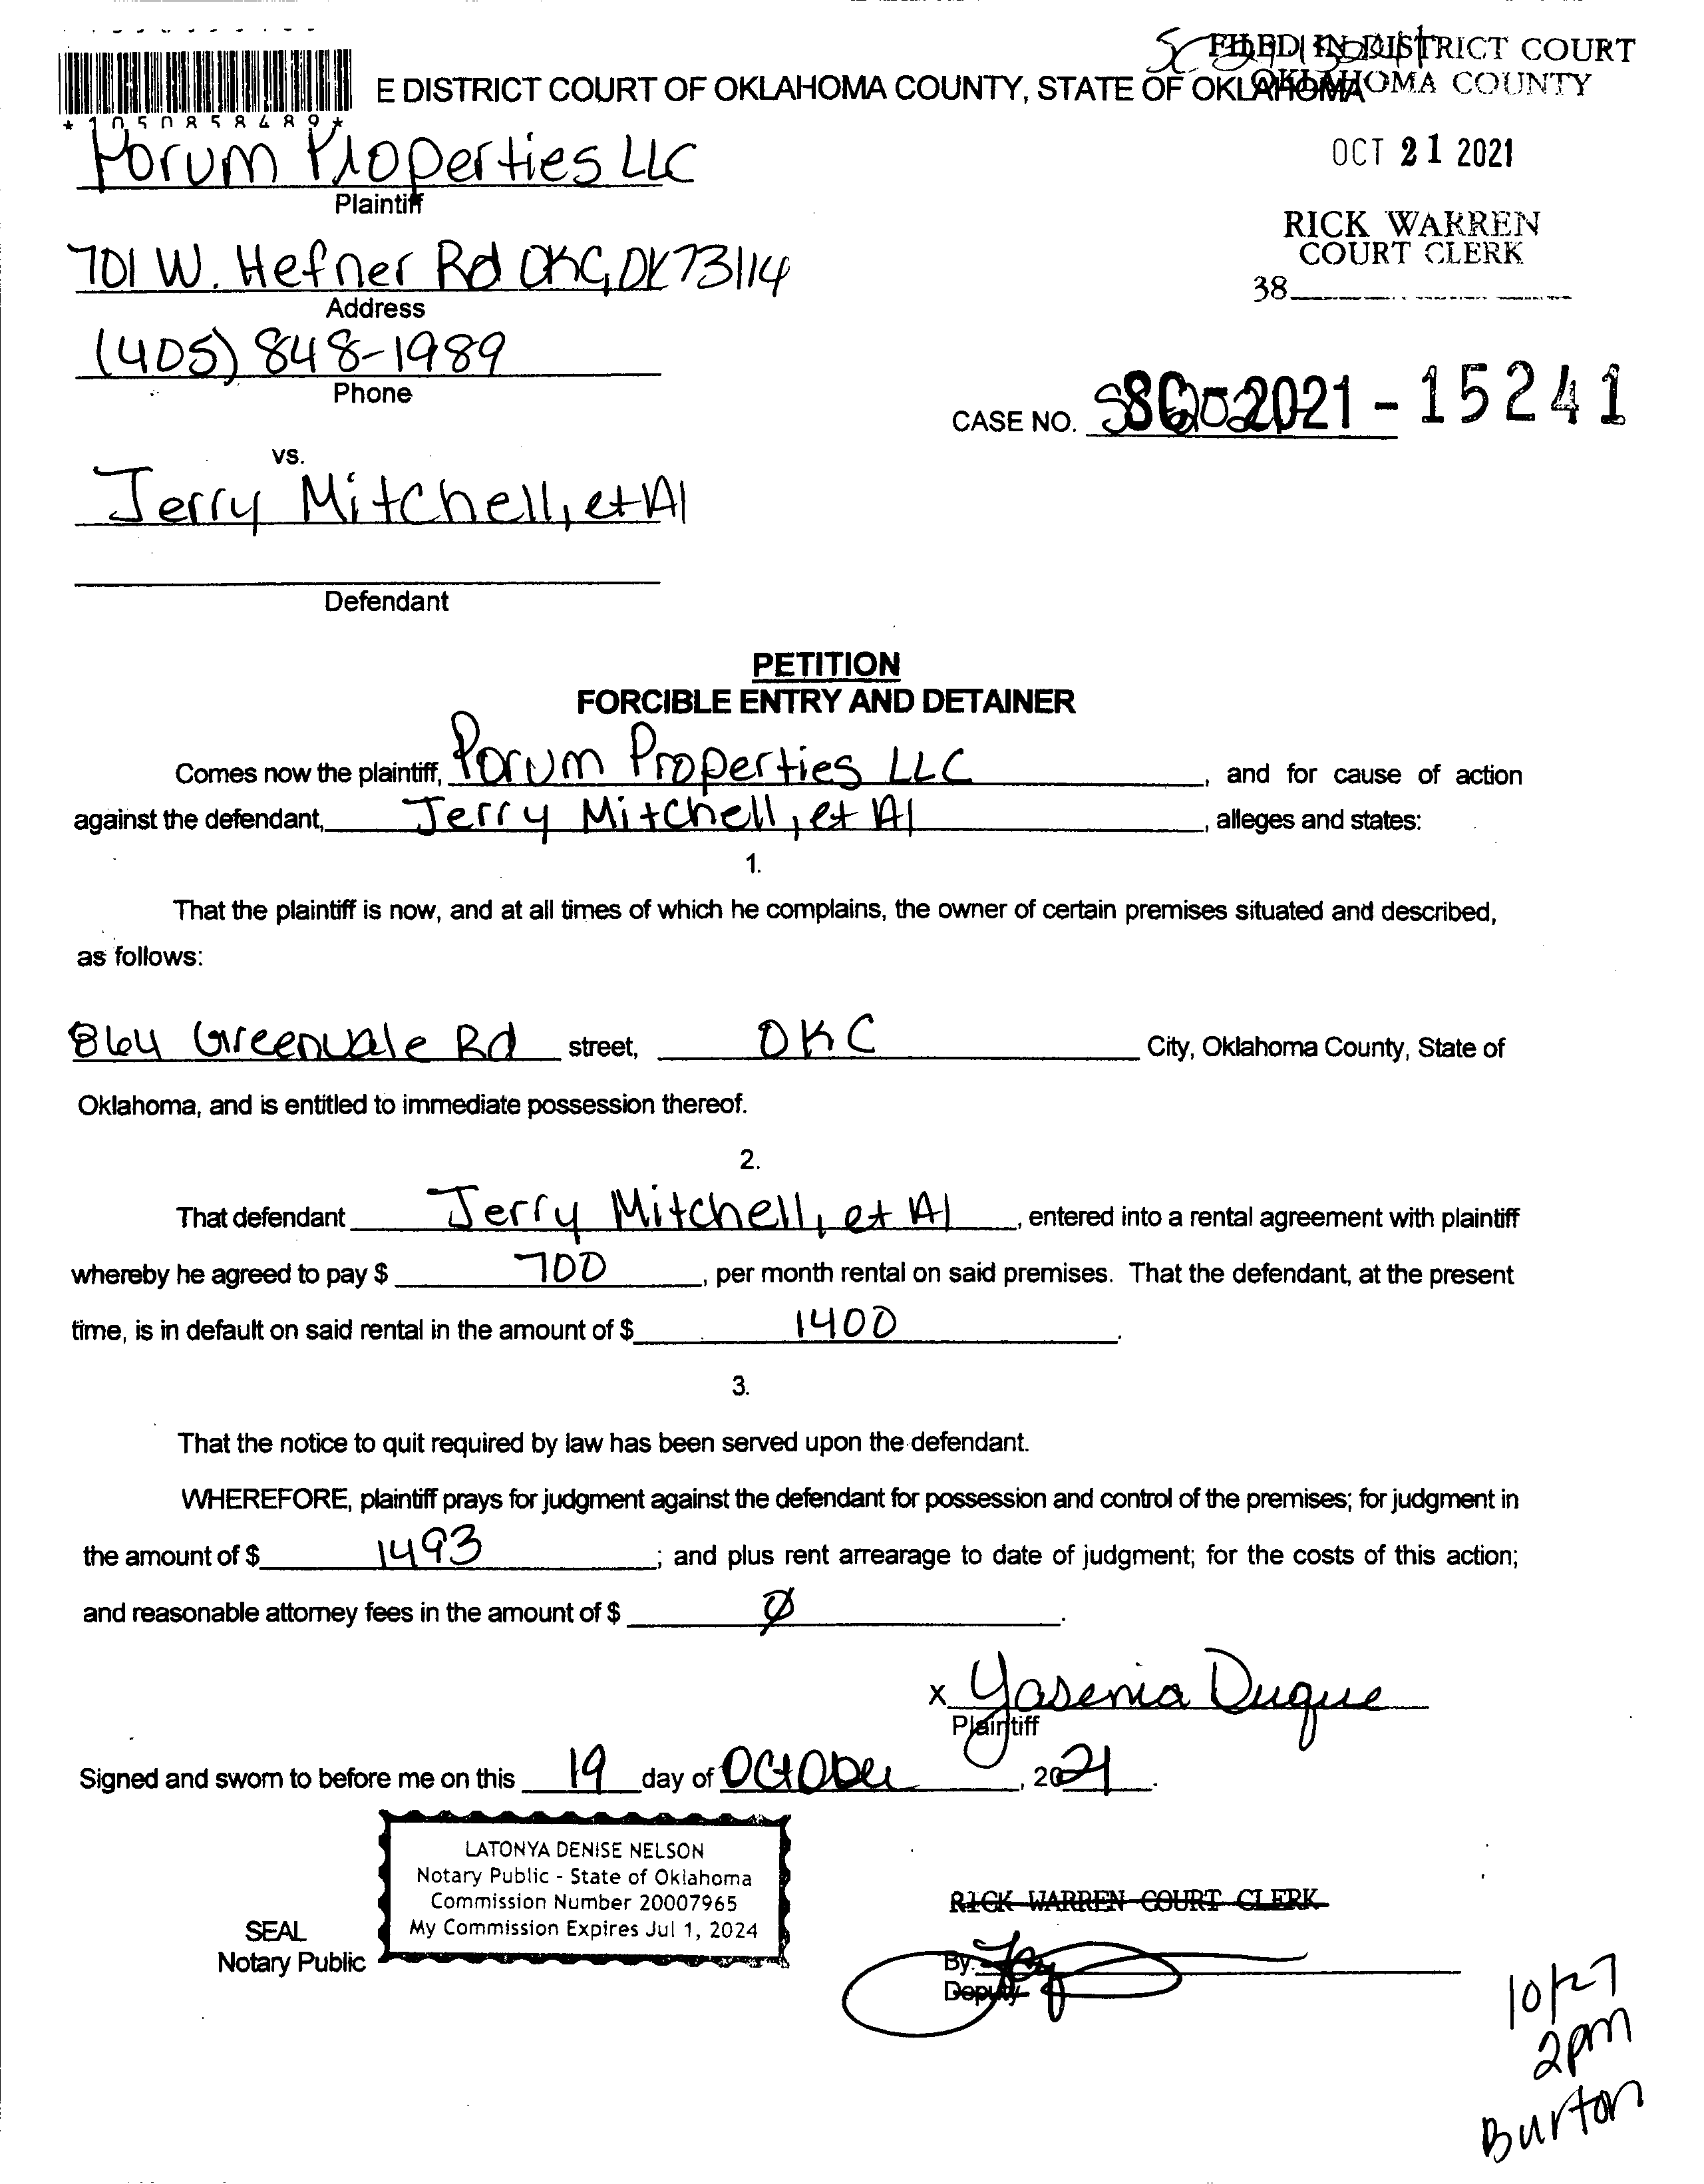 FILED IN DISTRICT COURT
OKLAHOMA COUNTY
E DISTRICT COURT OF OKLAHOMA COUNTY, STATE OF OKLAHOMA
*1050858489*
OCT 21 2021
RICK WARREN
COURT CLERK
38
Porum Properties LLC
Plaintiff
701 W. Hefner Rd OKC, OK 73114
Address
(405) 848-1989
Phone
CASE NO. SC-2021-15241
vs.
Jerry Mitchell, et Al
Defendant
PETITION
FORCIBLE ENTRY AND DETAINER
Comes now the plaintiff, Porum Properties LLC, and for cause of action
against the defendant, Jerry Mitchell, et Al, alleges and states:
1.
That the plaintiff is now, and at all times of which he complains, the owner of certain premises situated and described,
as follows:
864 Greenvale Rd street, OKC City, Oklahoma County, State of
Oklahoma, and is entitled to immediate possession thereof.
2.
That defendant Jerry Mitchell, et Al, entered into a rental agreement with plaintiff
whereby he agreed to pay $ 700, per month rental on said premises. That the defendant, at the present
time, is in default on said rental in the amount of $ 1400.
3.
That the notice to quit required by law has been served upon the defendant.
WHEREFORE, plaintiff prays for judgment against the defendant for possession and control of the premises; for judgment in
the amount of $ 1493; and plus rent arrearage to date of judgment; for the costs of this action;
and reasonable attorney fees in the amount of $ Ø.
x Yasenia Duque
Plaintiff
Signed and sworn to before me on this 19 day of October, 2021.
LATONYA DENISE NELSON
Notary Public - State of Oklahoma
Commission Number 20007965
My Commission Expires Jul 1, 2024
SEAL
Notary Public
RICK WARREN COURT CLERK
By:
Deputy
10/27
2pm
Burton